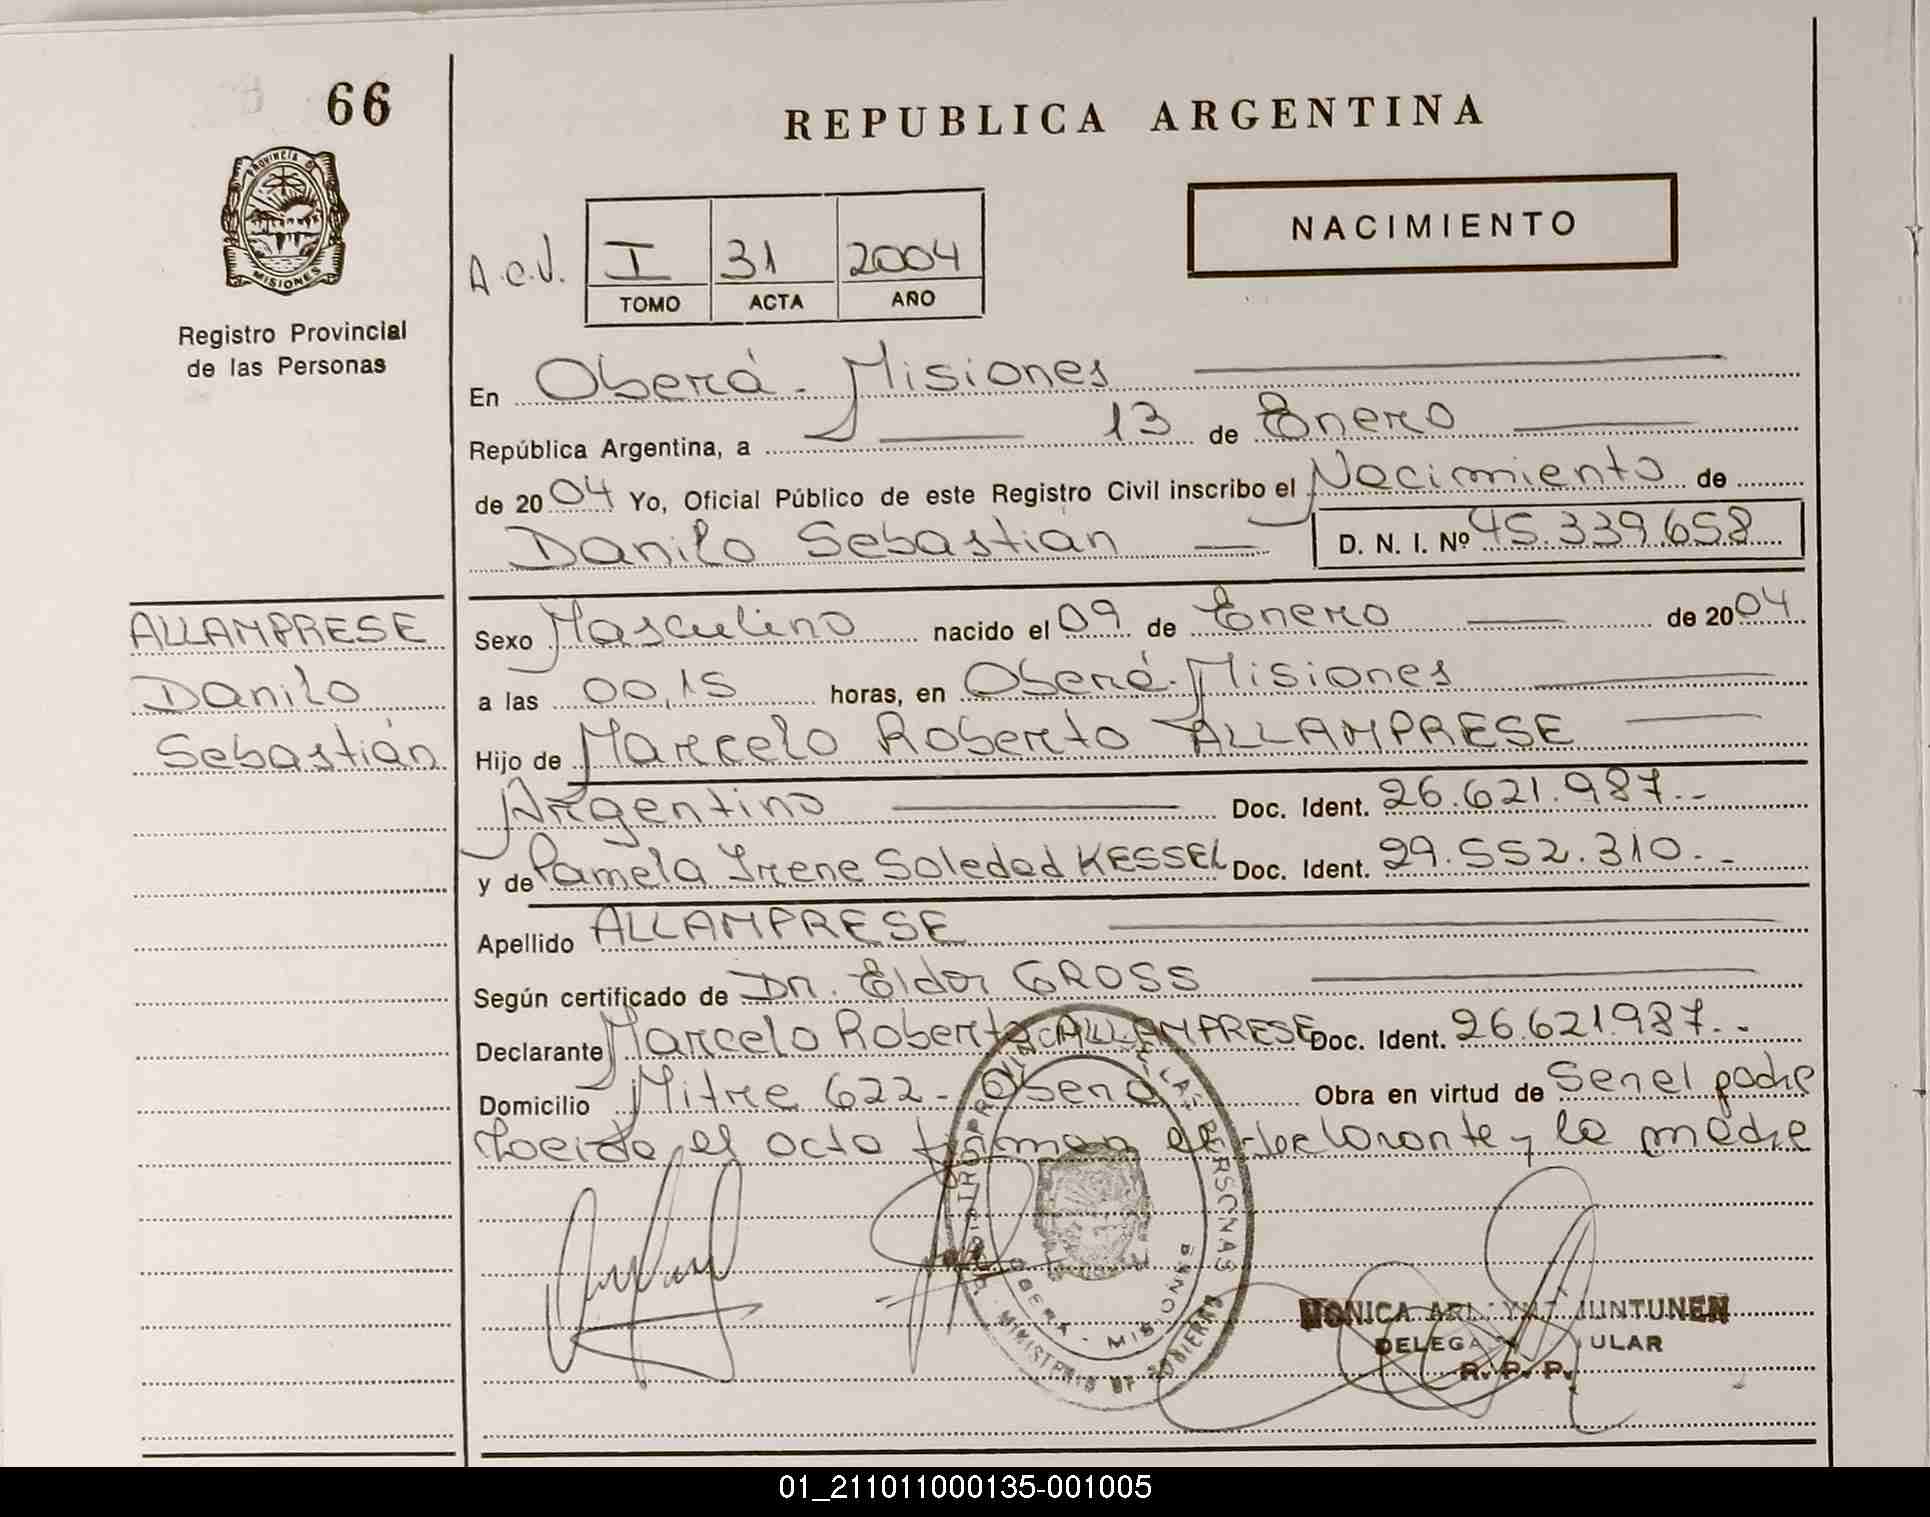 66
REPUBLICA ARGENTINA
PROVINCIA DE
MISIONES
Registro Provincial
de las Personas
NACIMIENTO
A.C.V.
I 31 2004
TOMO ACTA AÑO
En Oberá - Misiones
República Argentina, a 13 de Enero
de 2004 Yo, Oficial Público de este Registro Civil inscribo el Nacimiento de
Danilo Sebastián D. N. I. Nº 45.339.658
ALLAMPRESE
Danilo
Sebastián
Sexo Masculino nacido el 09 de Enero de 2004
a las 00,15 horas, en Oberá - Misiones
Hijo de Marcelo Roberto ALLAMPRESE
Argentino Doc. Ident. 26.621.987.-
y de Pamela Irene Soledad KESSEL Doc. Ident. 29.552.310.-
Apellido ALLAMPRESE
Según certificado de Dr. Eldor GROSS
Declarante Marcelo Roberto ALLAMPRESE Doc. Ident. 26.621.987.-
Domicilio Mitre 622 - Oberá Obra en virtud de Ser el padre
Leida el acta firman el declarante y la madre
OBERA - MISIONES
MINISTERIO DE GOBIERNO
MONICA JUNTUNEN
R. P. P.
01_211011000135-001005